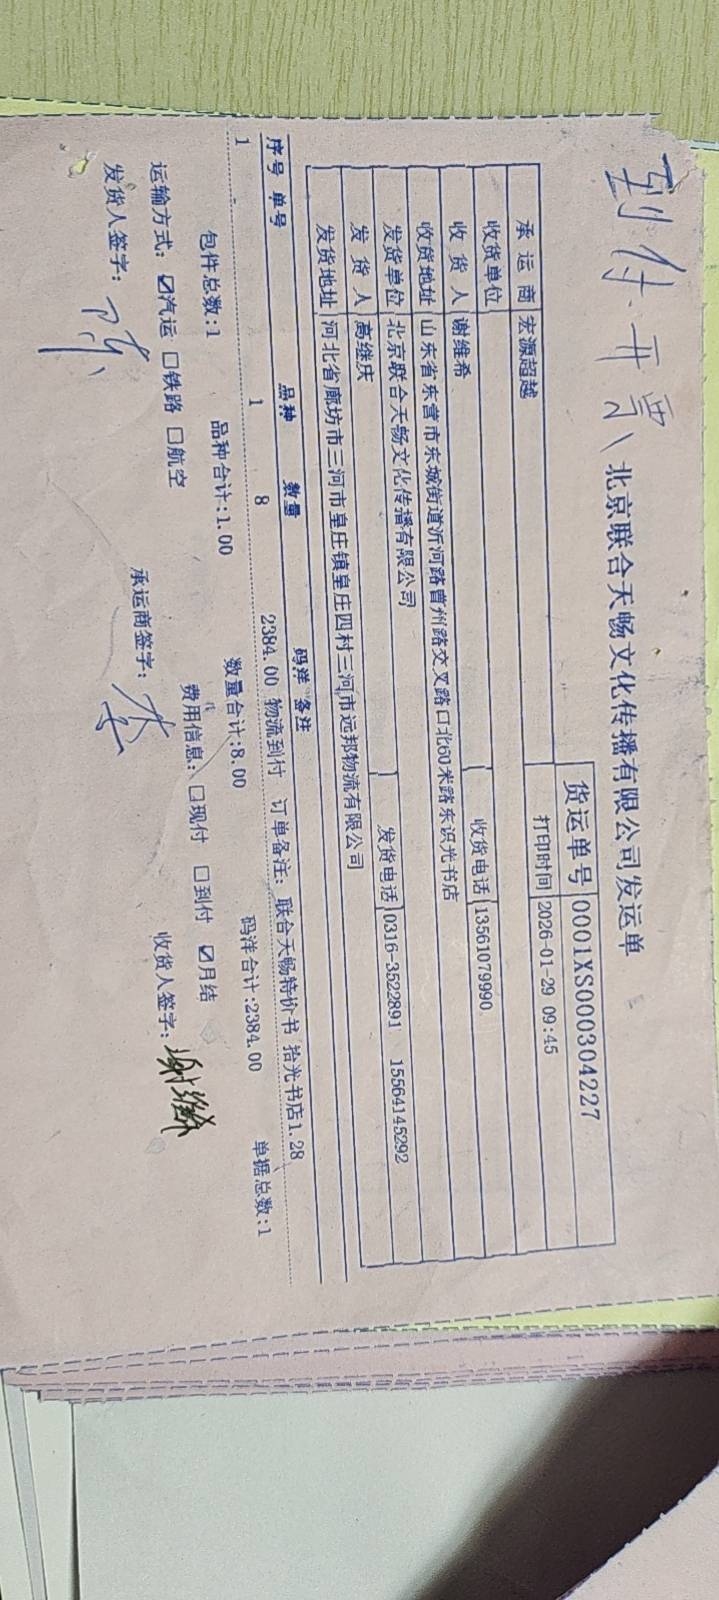 到付.开票
北京联合天畅文化传播有限公司发运单
货运单号 0001XS000304227
承运商 宏源超越 打印时间 2026-01-29 09:45
收货单位
收货人 谢维希 收货电话 13561079990
收货地址 山东省东营市东城街道沂河路曹州路交叉路口北60米路东识光书店
发货单位 北京联合天畅文化传播有限公司
发货人 高继庆 发货电话 0316-3522891 15564145292
发货地址 河北省廊坊市三河市皇庄镇皇庄四村三河市远邦物流有限公司
序号 单号 品种 数量 码洋 备注
1 1 8 2384.00 物流到付 订单备注: 联合天畅特价书 拾光书店1.28
包件总数:1 品种合计:1.00 数量合计:8.00 码洋合计:2384.00 单据总数:1
运输方式: ☑汽运 □铁路 □航空 费用信息: □现付 □到付 ☑月结
发货人签字: 承运商签字: 收货人签字: 谢维希